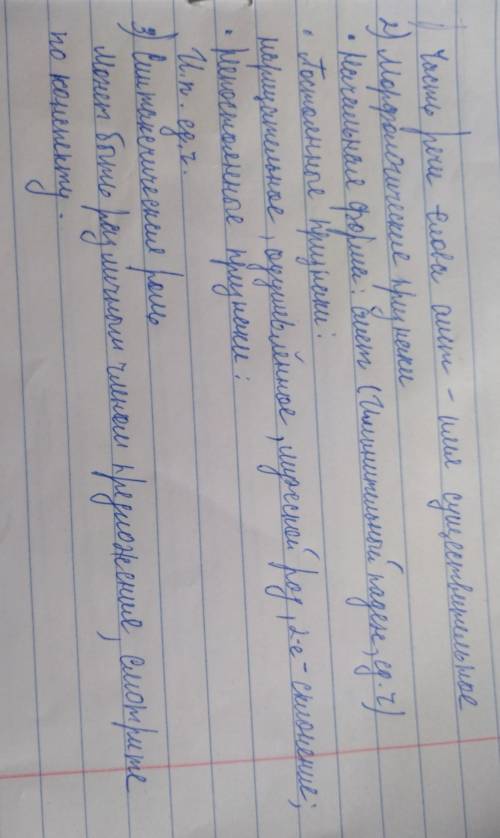 1) Часть речи слова аист - имя существительное
2) Морфологические признаки
• Начальная форма: аист (Именительной падеж, ед.ч)
• Постоянное признаки:
нарицательное, одушевлённое, мужской род, 2-е-склонение;
• Непостоянное признаки:
И.п. ед.ч.
3) Синтаксическия роль
Может быть различном членом предложения, смотрите
по концепту.